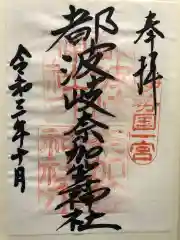 奉拝
一宮
都波岐奈加等神社
令和三年十月